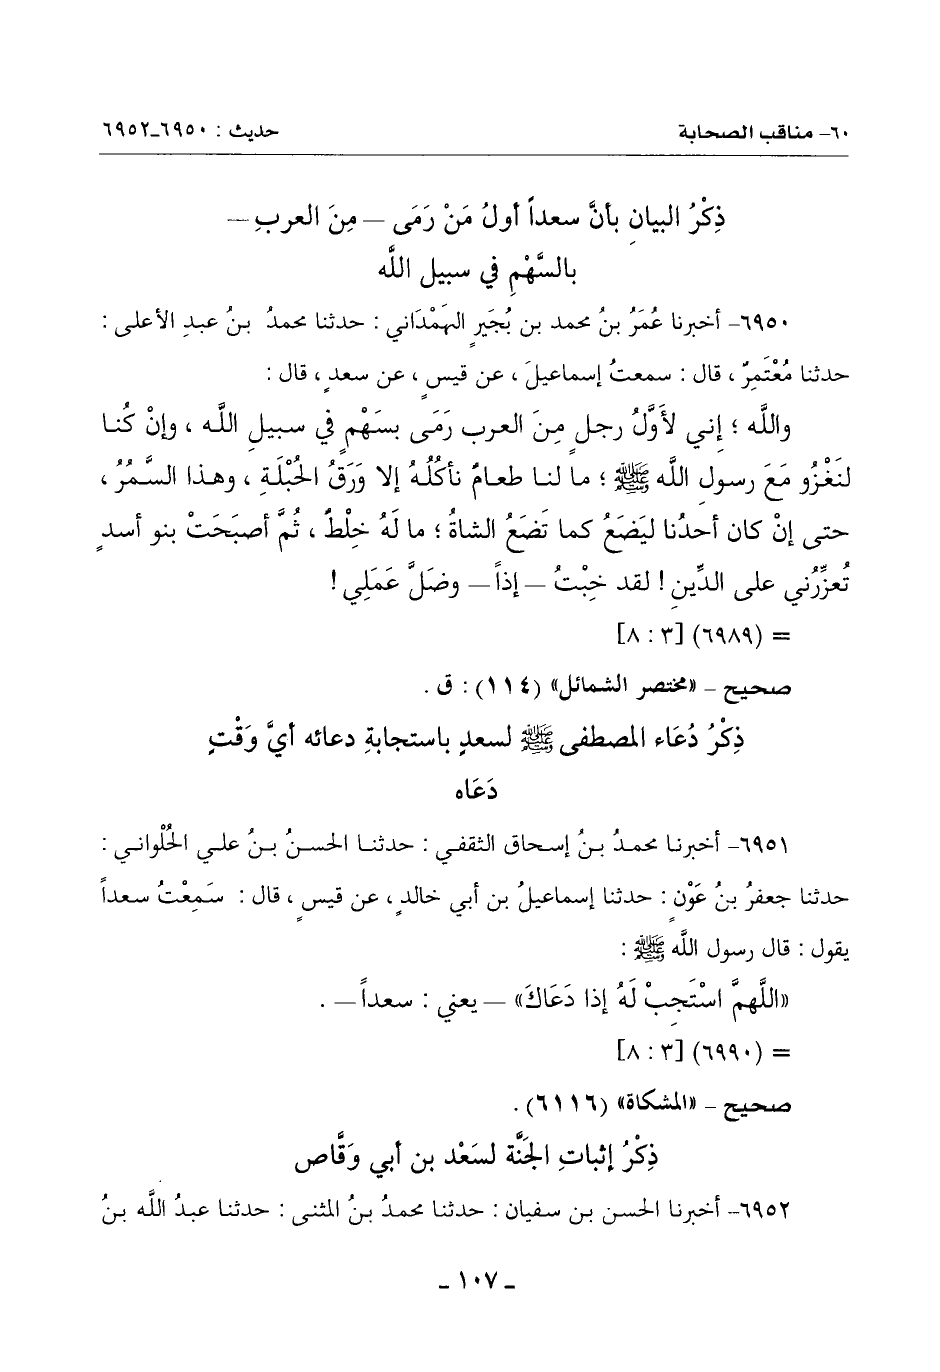 ٦٠- مناقب الصحابة حديث : ٦٩٥٠-٦٩٥٢
ذِكْرُ البيانِ بأنَّ سعداً أولُ مَنْ رَمَى – مِنَ العربِ –
بالسَّهْمِ في سبيل اللَّه
٦٩٥٠- أخبرنا عُمَرُ بنُ محمد بن بُجَيرٍ الهَمْدَاني : حدثنا محمدُ بنُ عبدِ الأعلى :
حدثنا مُعْتَمِرٌ ، قال : سمعتُ إسماعيلَ ، عن قيسٍ ، عن سعدٍ ، قال :
واللَّه ؛ إني لأَوَّلُ رجلٍ مِنَ العرب رَمَى بسَهْمٍ في سبيلِ اللَّه ، وإنْ كُنا
لنَغْزُو مَعَ رسولِ اللَّه ﷺ ؛ ما لنا طعامٌ نأكُلُهُ إلا وَرَقُ الحُبْلَةِ ، وهذا السَّمُرُ ،
حتى إنْ كان أحدُنا ليَضَعُ كما تَضَعُ الشاةُ ؛ ما لَهُ خِلْطٌ ، ثُمَّ أصبَحَتْ بنو أسدٍ
تُعزِّرُني على الدِّينِ ! لقد خِبْتُ – إذاً – وضَلَّ عَمَلِي !
= (٦٩٨٩) [٣ : ٨]
صحيح – «مختصر الشمائل» (١١٤) : ق .
ذِكْرُ دُعَاء المصطفى ﷺ لسعدٍ باستجابةِ دعائه أيَّ وَقْتٍ
دَعَاه
٦٩٥١- أخبرنا محمدُ بنُ إسحاق الثقفي : حدثنا الحسنُ بنُ علي الحُلْواني :
حدثنا جعفرُ بنُ عَوْنٍ : حدثنا إسماعيلُ بن أبي خالدٍ ، عن قيسٍ ، قال : سَمِعْتُ سعداً
يقول : قال رسول اللَّه ﷺ :
«اللَّهمَّ اسْتَجِبْ لَهُ إذا دَعَاكَ» – يعني : سعداً – .
= (٦٩٩٠) [٣ : ٨]
صحيح – «المشكاة» (٦١١٦) .
ذِكْرُ إثباتِ الجَنَّة لسَعْد بن أبي وَقَّاص
٦٩٥٢- أخبرنا الحسن بن سفيان : حدثنا محمدُ بنُ المثنى : حدثنا عبدُ اللَّه بنُ
– ١٠٧ –